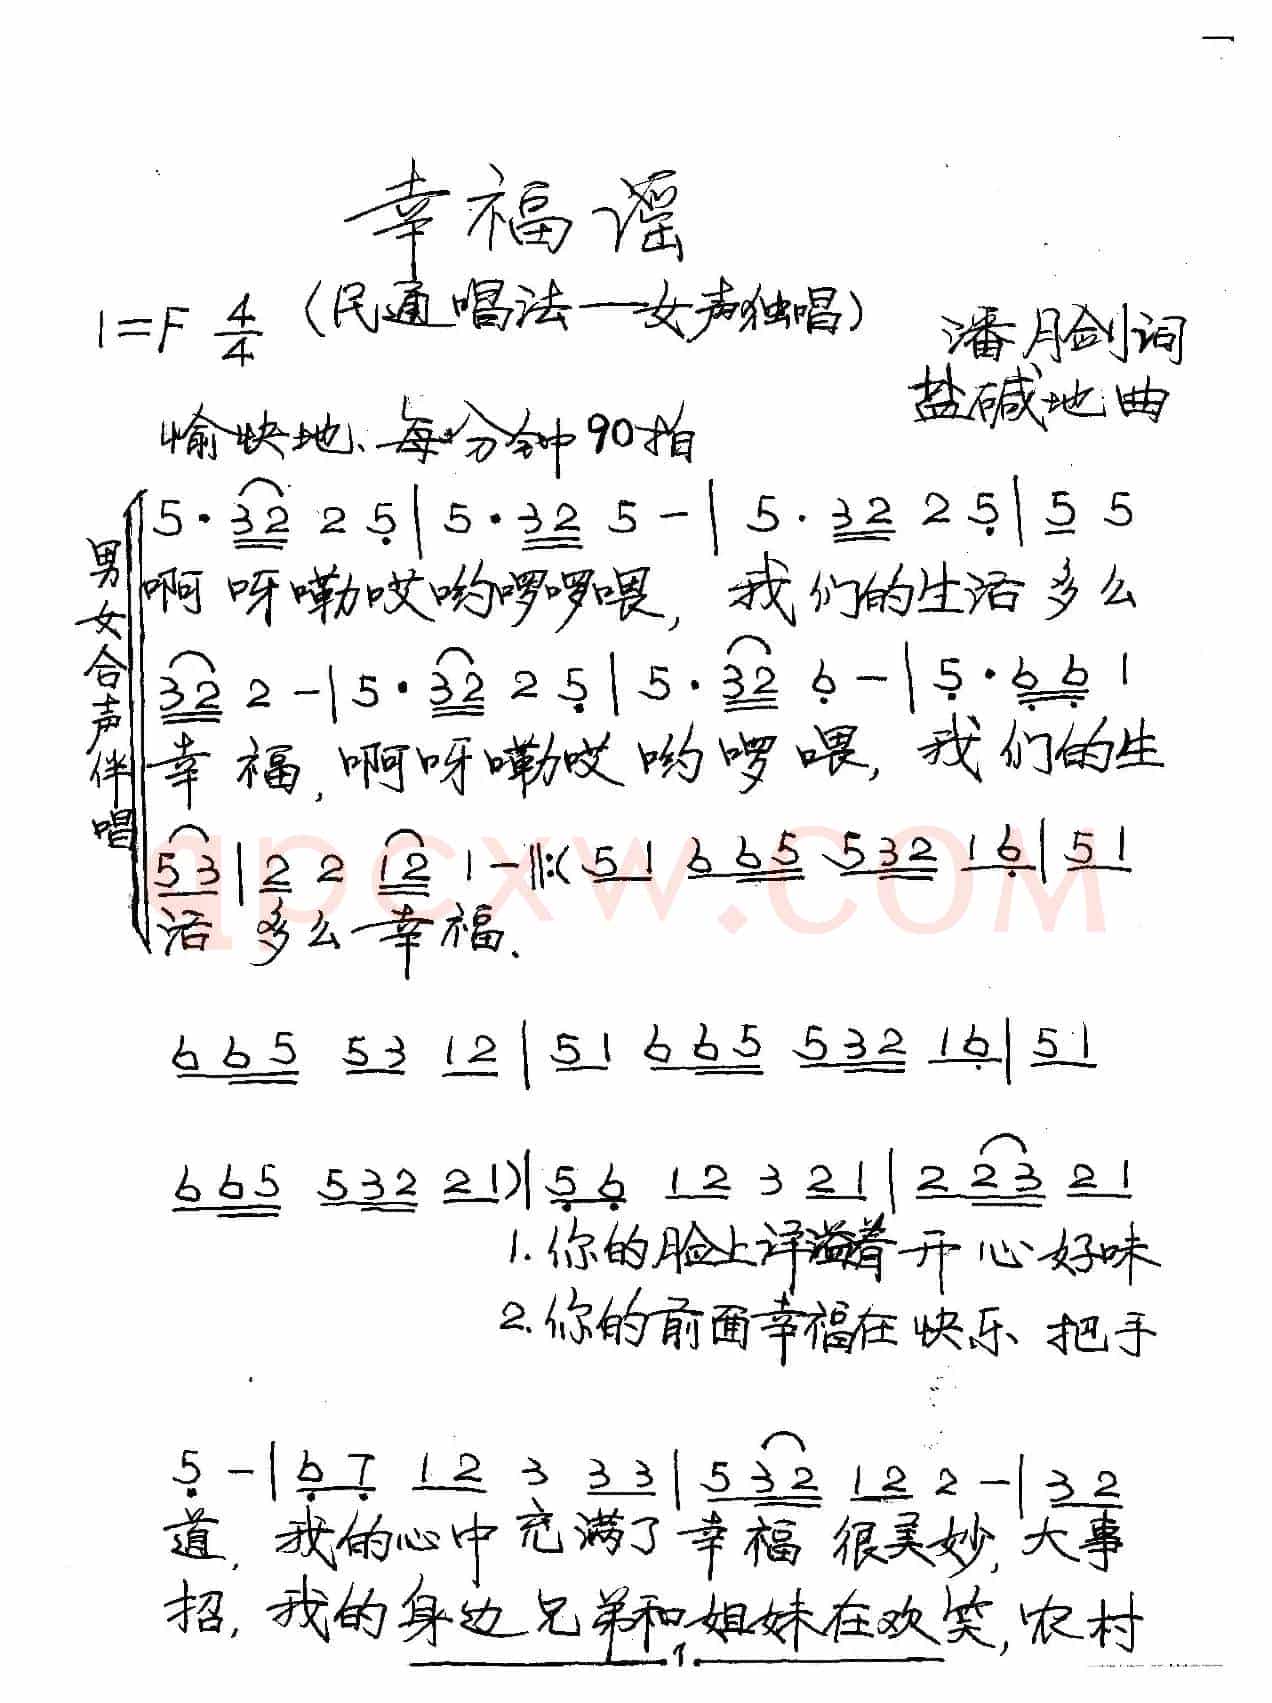 幸福谣
1=F 4/4 (民通唱法——女声独唱)
潘月剑词
盐碱地曲
愉快地、每分钟90拍
男女合声伴唱
5· 32 2 5 | 5· 32 5 - | 5· 32 2 5 | 5 5
啊呀嘞哎哟啰啰喂，我们的生活多么
32 2 - | 5· 32 2 5 | 5· 32 6 - | 5· 66 1
幸福，啊呀嘞哎哟啰喂，我们的生
53 | 2 2 12 1 - ‖:(51 665 532 16 | 51
活多么幸福.
qpcxw.COM
665 53 12 | 51 665 532 16 | 51
665 532 21) | 56 12 3 21 | 2 23 21
1.你的脸上洋溢着开心好味
2.你的前面幸福在快乐把手
5 - | 67 12 3 33 | 532 12 2 - | 32
道，我的心中充满了幸福很美妙，大事
招，我的身边兄弟和姐妹在欢笑，农村
.1.